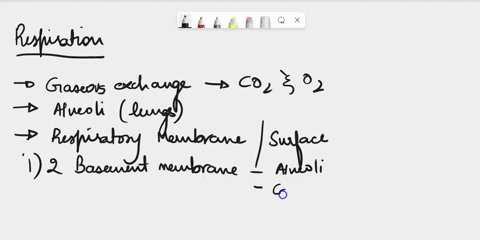 Respiration
→ Gaseous exchange → CO2 & O2
→ Alveoli (lungs)
→ Respiratory Membrane / Surface
1) 2 Basement membrane – Alveoli
– C